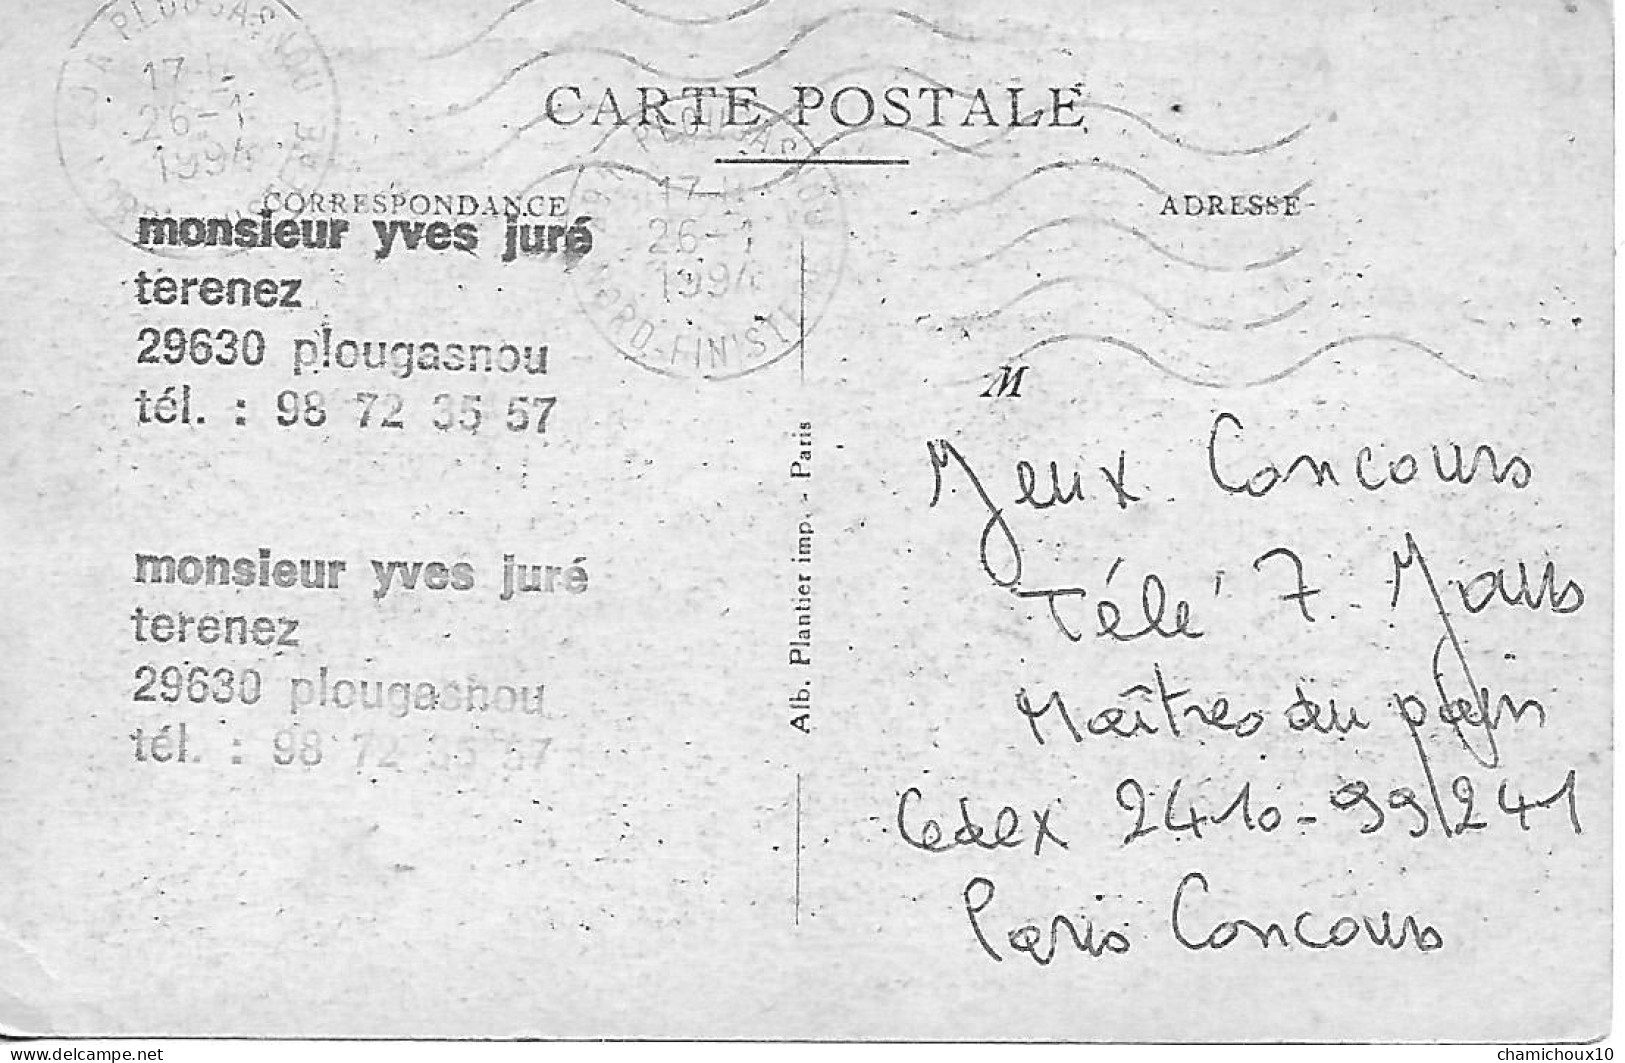 PLOUGASNOU
17 H
26-1
1994
NORD-FINISTERE
CARTE POSTALE
PLOUGASNOU
17 H
26-1
1994
NORD-FINISTERE
CORRESPONDANCE
ADRESSE
monsieur yves juré
terenez
29630 plougasnou
tél. : 98 72 35 57
monsieur yves juré
terenez
29630 plougasnou
tél. : 98 72 35 57
Alb. Plantier imp. - Paris
M
Jeux Concours
Télé 7 Jours
Maîtres du pain
Cedex 2410-99/241
Paris Concours
www.delcampe.net
chamichoux10